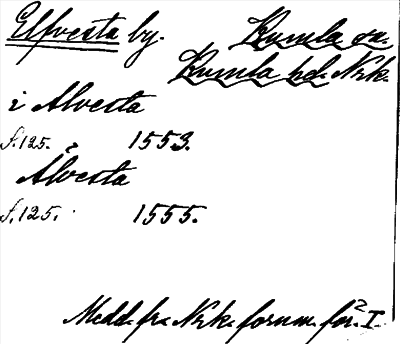 Elfvesta by. Kumla sn.
Kumla hd. Nrk.
i Alvesta
s. 125. 1553.
Ålvesta
s. 125. 1555.
Medd. fr. Nrk. fornm. för. 2 I.